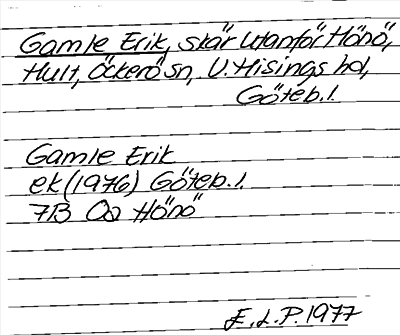 Gamle Erik, skär utanför Hönö,
Hult, Öckerö sn, V. Hisings hd,
Göteb. l.
Gamle Erik
ek (1976) Göteb. l.
7B 0a Hönö
E. L. P. 1977